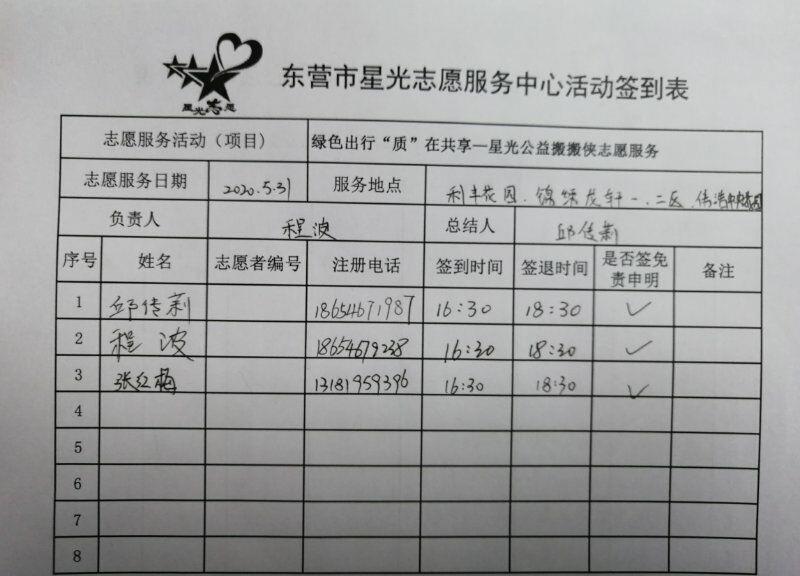 星光志愿
东营市星光志愿服务中心活动签到表
志愿服务活动（项目） 绿色出行“质”在共享—星光公益搬搬侠志愿服务
志愿服务日期 2020.5.31 服务地点 利丰花园.锦绣龙轩一.二区.伟浩中央
负责人 程波 总结人 邱传莉
序号 姓名 志愿者编号 注册电话 签到时间 签退时间 是否签免责申明 备注
1 邱传莉 18654671987 16:30 18:30 ✓
2 程波 18654679238 16:30 18:30 ✓
3 张红梅 13181959396 16:30 18:30 ✓
4
5
6
7
8